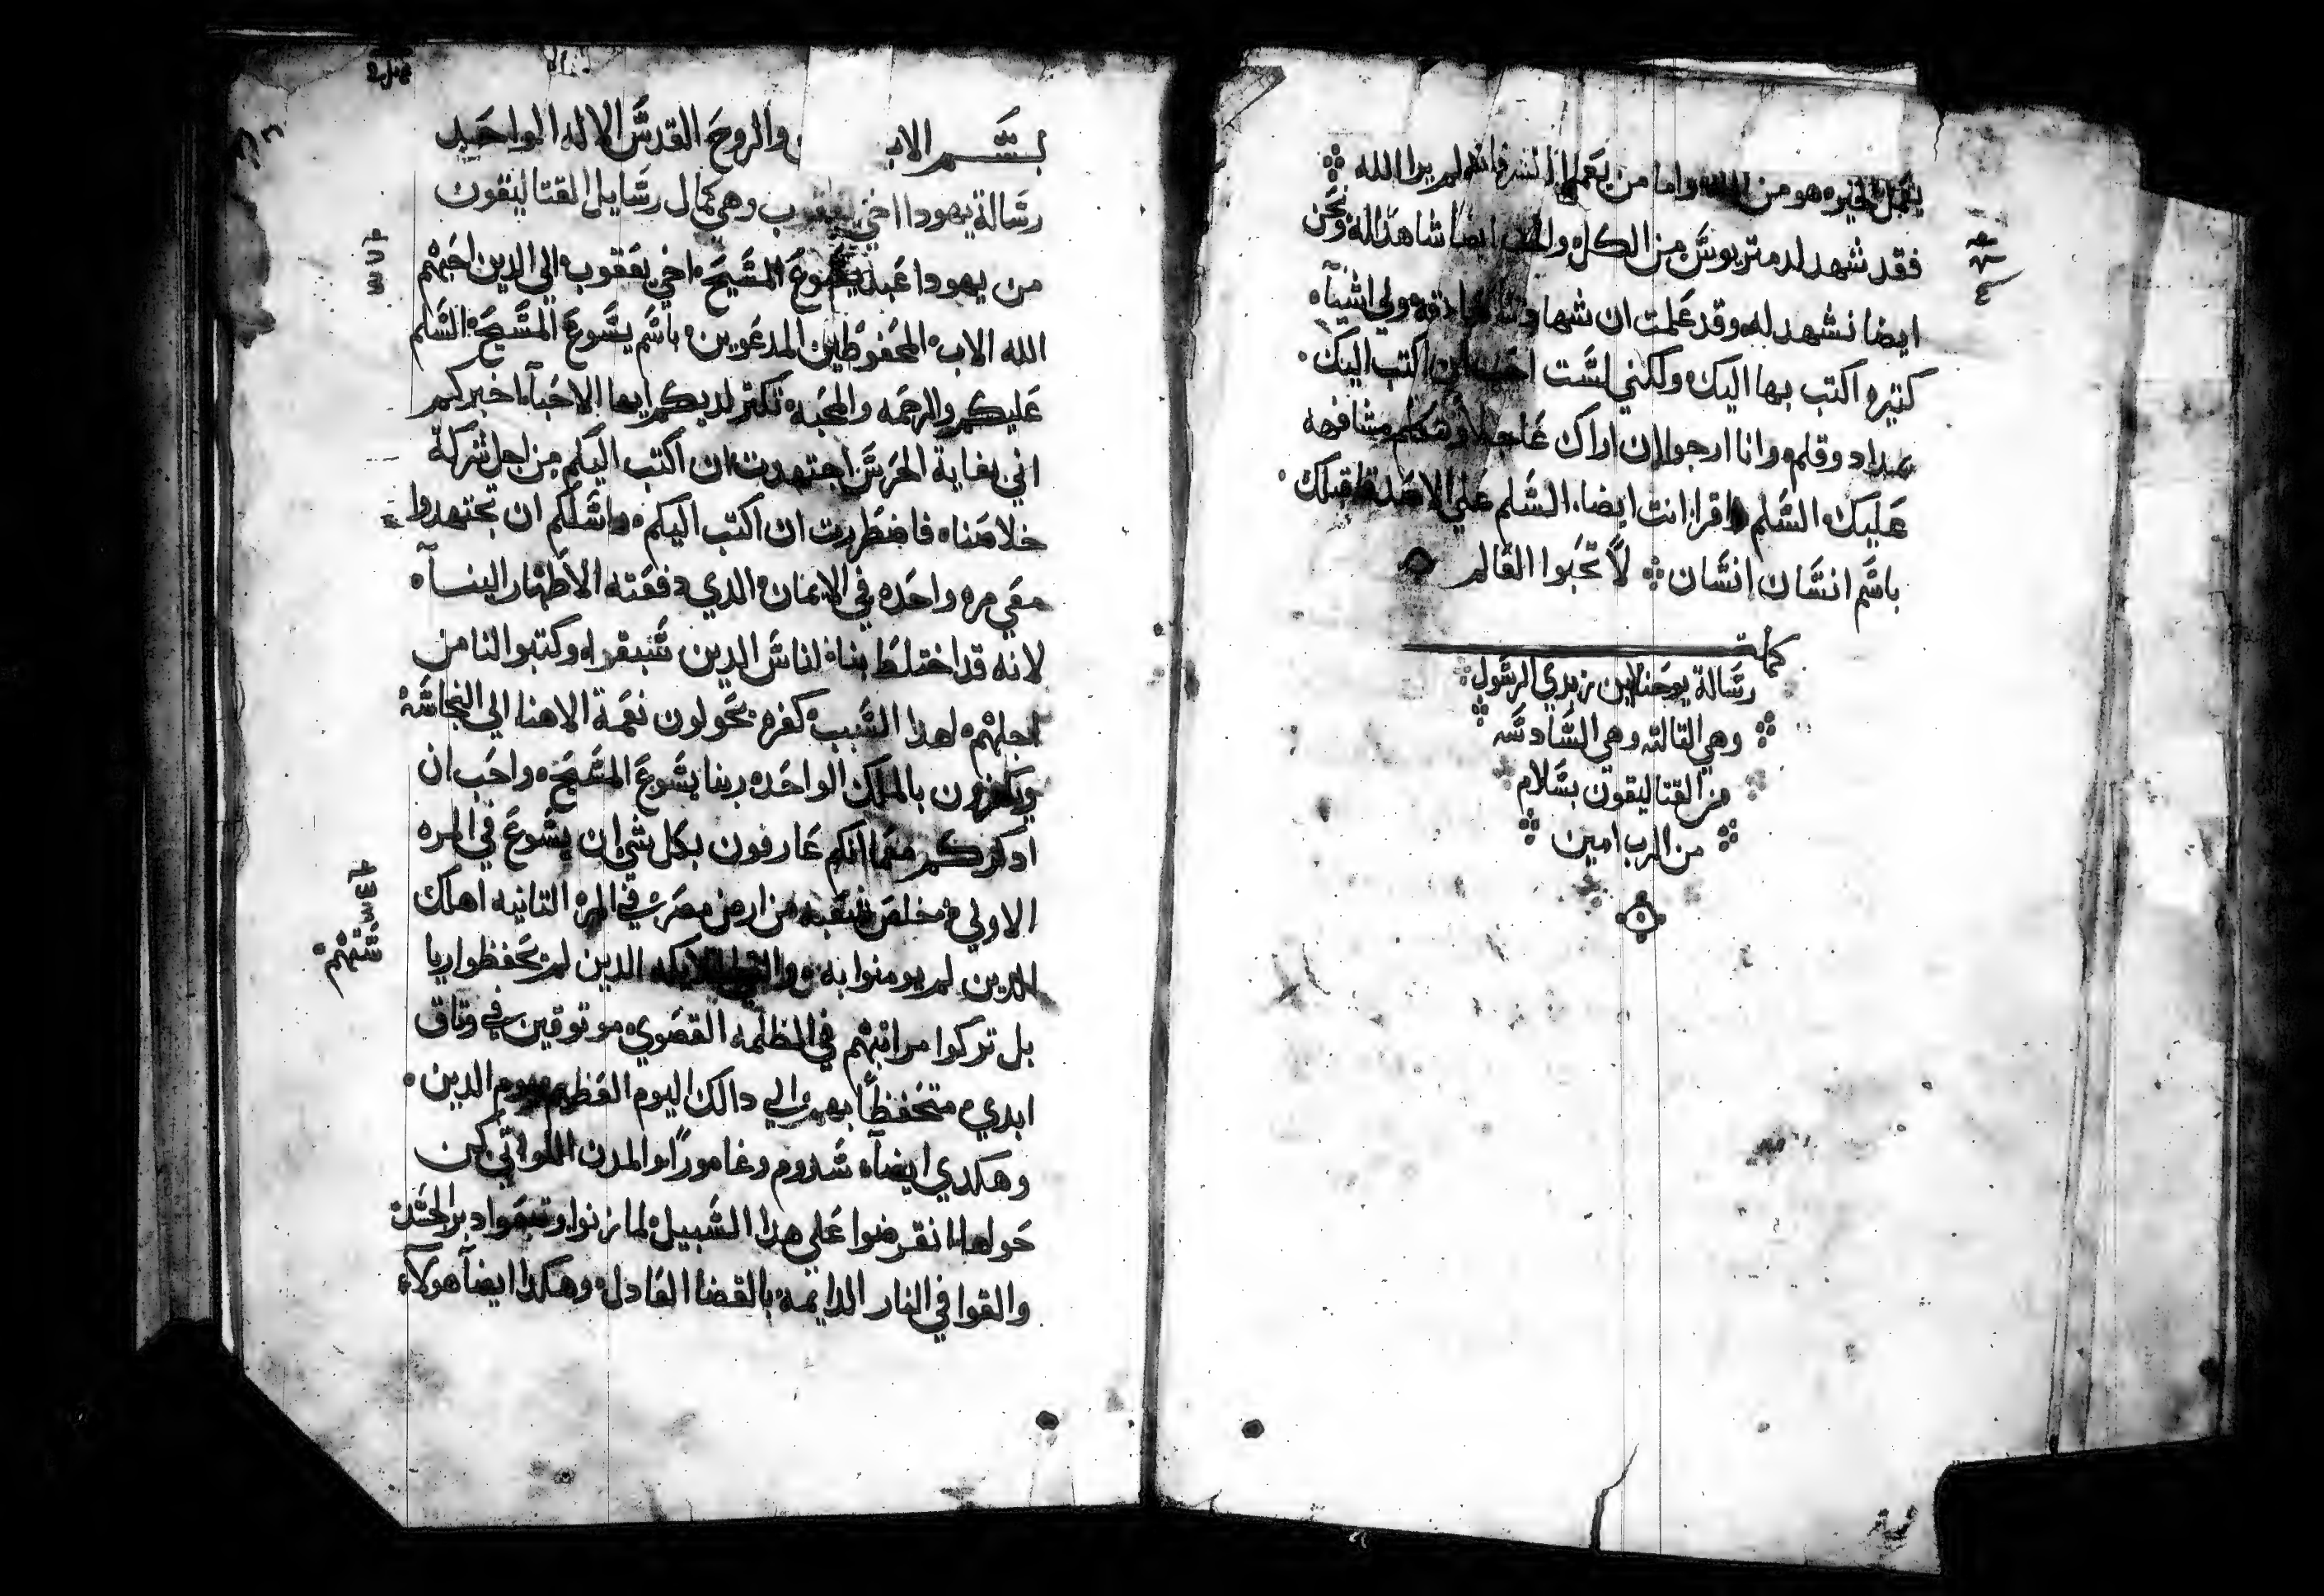 يعمل الخير هو من الله واما من يعمل الشر فانه لم يرا الله
فقد شهد لدمتريوس من الكل والحق ايضا شاهدًا له ونحن
ايضا نشهد له وقد علمت ان شهادتنا صادقه ولي اشيآ
كتيره اكتب بها اليك ولكني لست احب ان اكتب اليك
بمداد وقلم وانا ارجوا لان اراك عاجلا ونتكلم مشافهه
عليك السلم اقرا انت ايضا السلم علي الاصدقا قبلك
باسم انسان انسان لا تحبوا العالم
كملت
رسالة يوحنا ابن زبدي الرسول
وهي التالته وهي السادسه
من القتاليقون بسلام
من الرب امين
بسم الاب والروح القدس الاله الواحد
رسالة يهودا اخي يعقوب وهي كمال رسايل القتاليقون
من يهودا عبد يسوع المسيح اخي يعقوب الي الدين احبهم
الله الاب المحفوظين المدعوين باسم يسوع المسيح السلم
عليكم والرحمه والمحبه تكتر لديكم ايها الاحبآ اخبركم
اني بغاية الحرس اجتهدت ان اكتب اليكم من اجل شركة
خلاصنا فاضطررت ان اكتب اليكم واسلكم ان تجتهدوا
معي مره واحده في الايمان الدي دفعته الاطهار الينا
لانه قد اختلط بنا اناس الدين سبقوا وكتبوا لنا من
اجلهم لهدا السبب كفره يحولون نعمة الاهنا الي النجاسه
ويكفرون بالملك الواحد ربنا يسوع المسيح واحب ان
ادكركم معما انكم عارفون بكل شي ان يسوع في المره
الاولي خلص شعبه من ارض مصر في المره التانيه اهلك
الدين لم يومنوا به والملايكه الدين لم يحفظوا ريا
ستهم
بل تركوا مراتبهم في الظلمه القصوي موتوقين في وتاق
ابدي متحفظًا بهم الي دالك اليوم العظيم يوم الدين
وهكدي ايضآ سدوم وغامورا والمدن اللواتي كن
حولها انقرضوا علي هدا السبيل لما زنوا وتبعوا دبر الجسد
والقوا في النار الدايمه بالقضا العادل وهكدا ايضآ هولآ